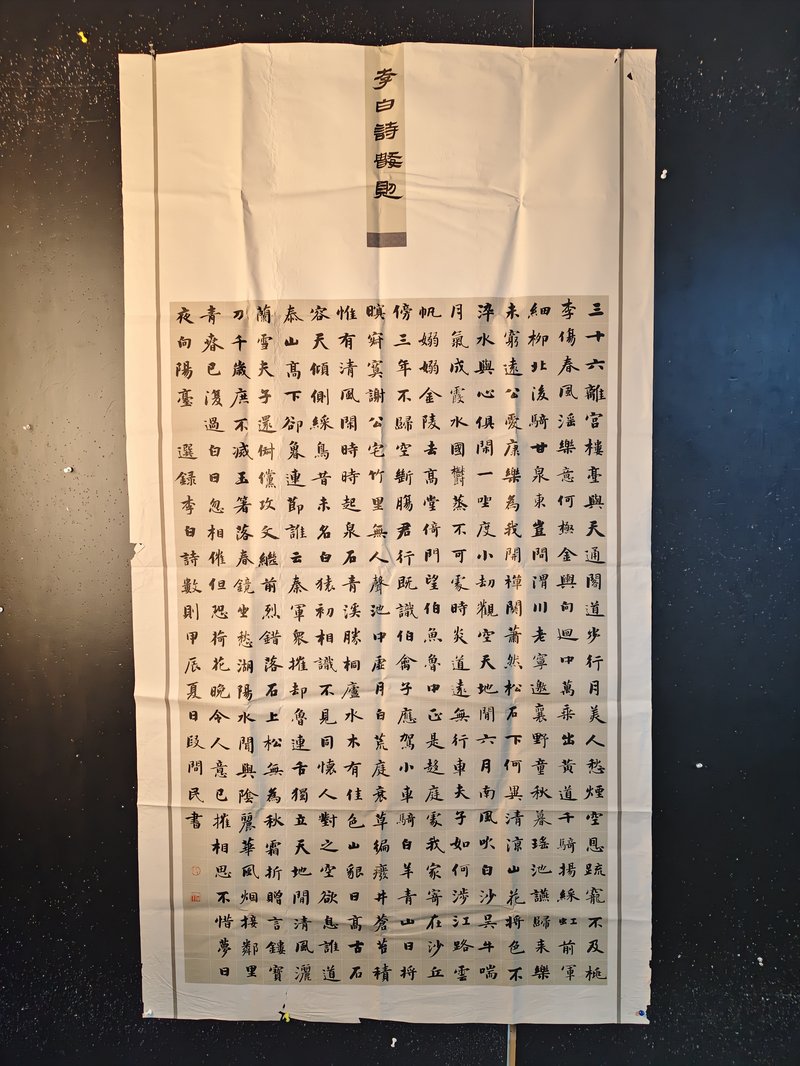 李白詩數則
三十六離宮樓臺與天通閣道步行月美人愁煙空恩疏寵不及桃
李傷春風淫樂意何極金輿向迴中萬乘出黃道千騎揚綵虹前軍
細柳北後騎甘泉東豈問渭川老寧邀襄野童秋暮瑤池讌歸来樂
未窮遠公愛康樂為我開禪關蕭然松石下何異清涼山花將色不
染水與心俱閑一坐度小劫觀空天地間六月南風吹白沙吳牛喘
月氣成霞水國鬱蒸不可處時炎道遠無行車夫子如何涉江路雲
帆嫋嫋金陵去高堂倚門望伯魚魯中正是趨庭處我家寄在沙丘
傍三年不歸空斷腸君行既識伯禽子應駕小車騎白羊青山日將
暝寂寞謝公宅竹里無人聲池中虛月白荒庭衰草徧廢井蒼苔積
惟有清風閑時時起泉石青溪勝桐廬水木有佳色山貌日高古石
容天傾側綵鳥昔未名白猿初相識不見同懷人對之空歎息誰道
泰山高下卻魯連節誰云秦軍眾摧却魯連舌獨立天地間清風灑
蘭雪夫子還倜儻攻文繼前烈錯落石上松無為秋霜折贈言鏤寶
刀千歲庶不滅玉箸落春鏡坐愁湖陽水聞與陰麗華風烟接鄰里
青春已復過白日忽相催但恐荷花晚令人意已摧相思不惜夢日
夜向陽臺 選錄李白詩數則甲辰夏日段問民書